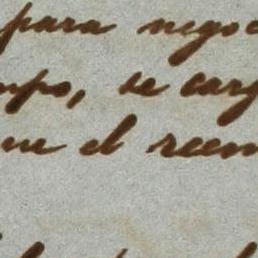 para negoc
mpo, se carg
ue el reem